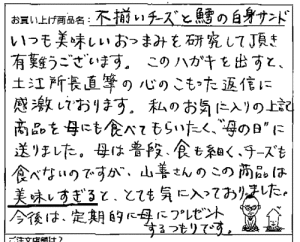 お買い上げ商品名： 不揃いチーズと鱈の白身サンド
いつも美味しいおつまみを研究して頂き
有難うございます。このハガキを出すと、
土江所長直筆の心のこもった返信に
感激しております。私のお気に入りの上記
商品を母にも食べてもらいたく、"母の日"に
送りました。母は普段、食も細く、チーズも
食べないのですが、山善さんのこの商品は
美味しすぎると、とても気に入っておりました。
今後は、定期的に母にプレゼント
するつもりです。